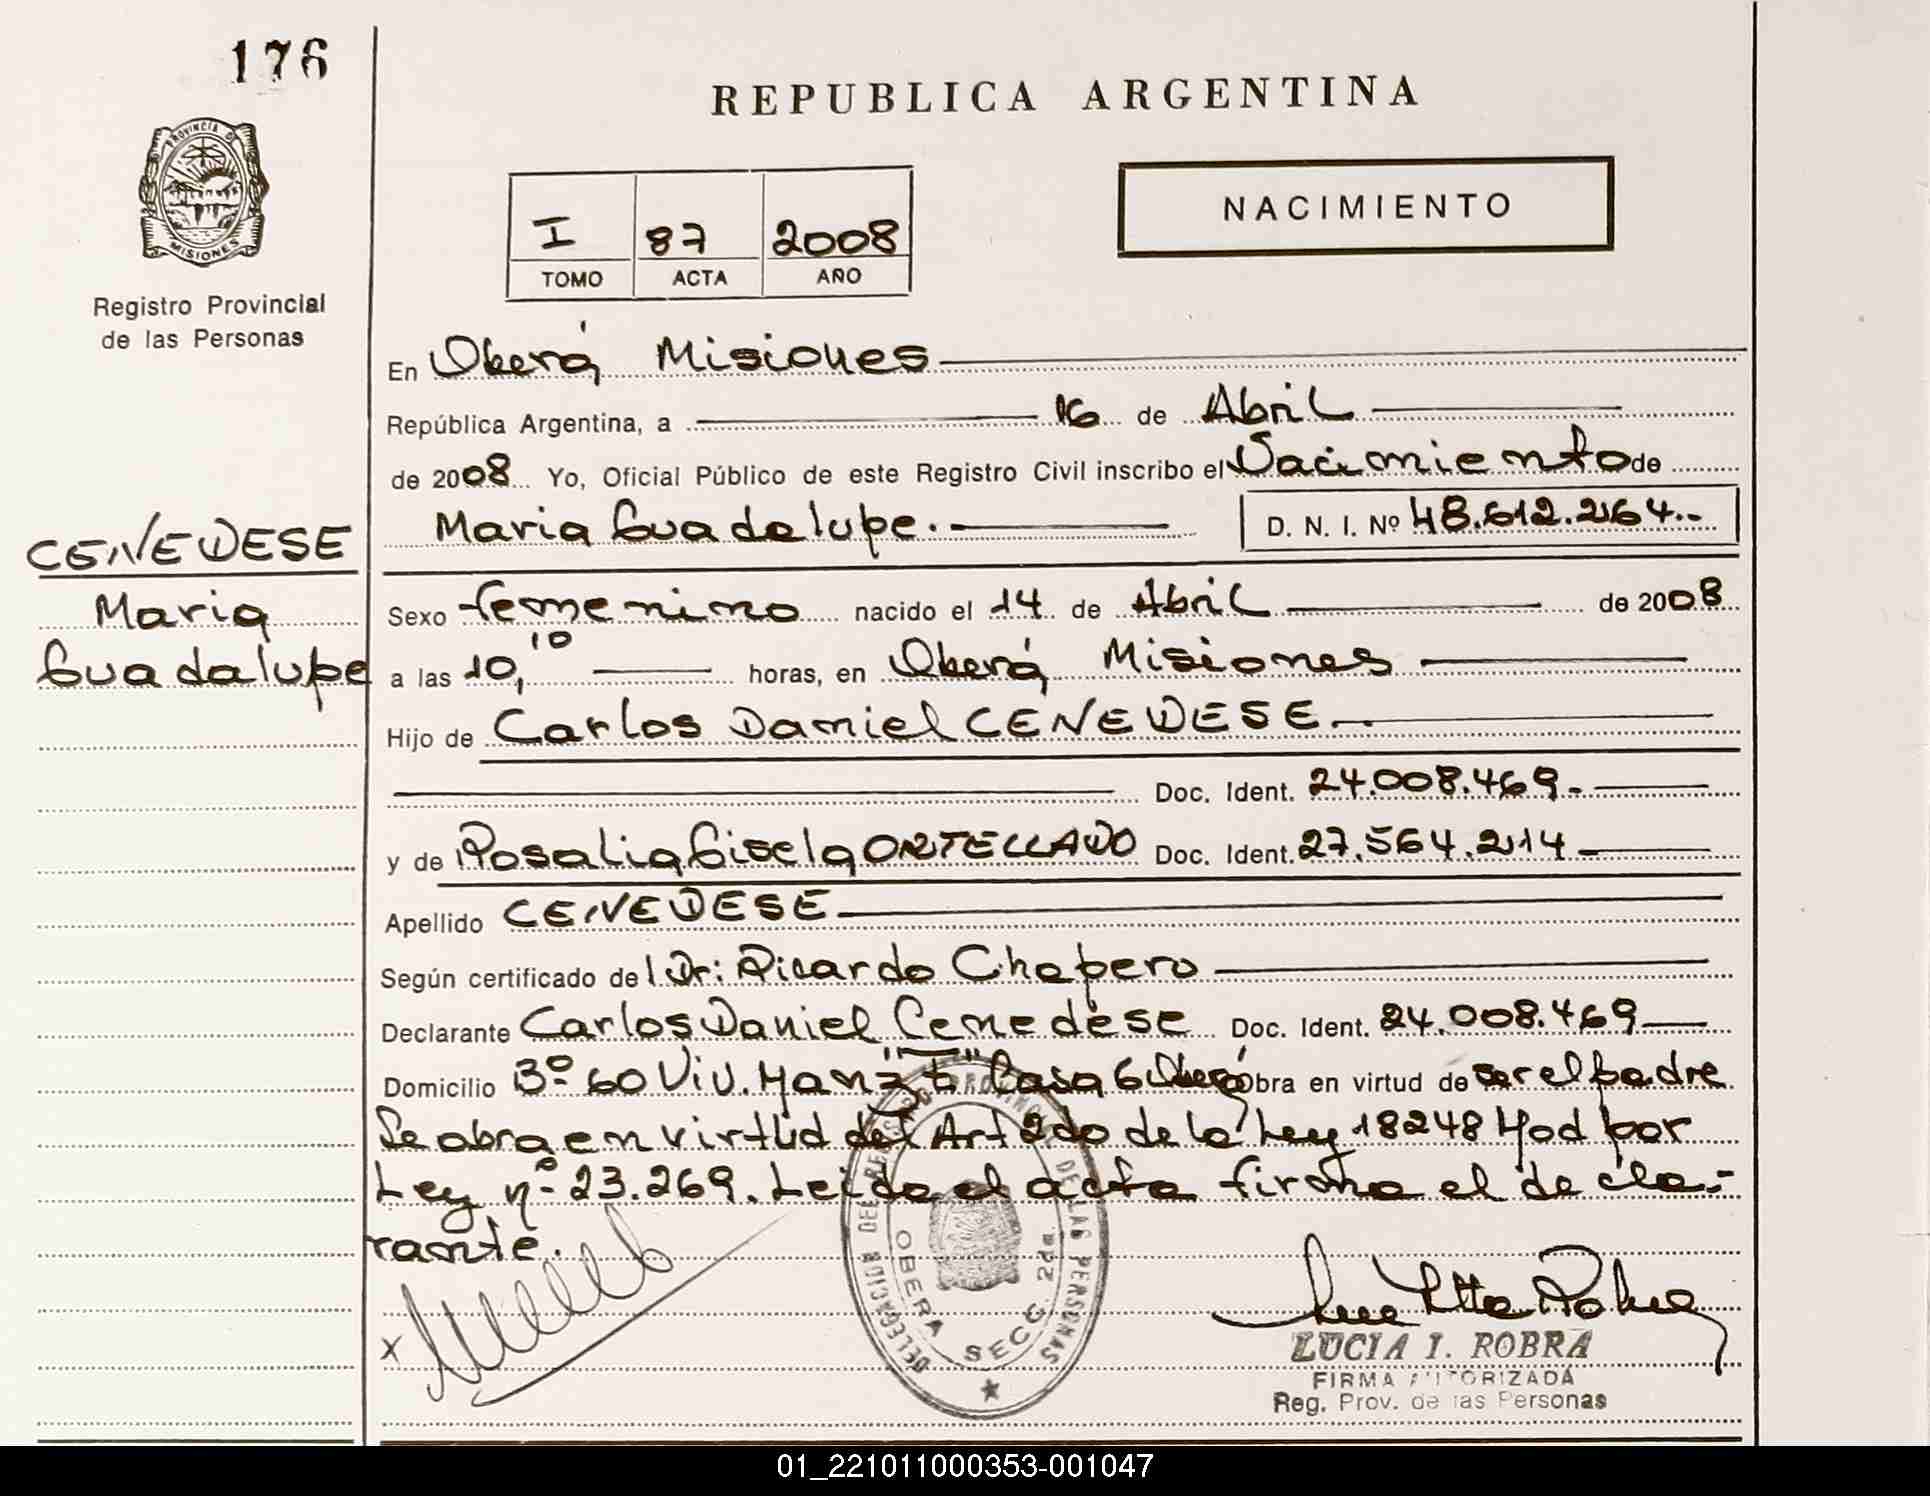 176
REPUBLICA ARGENTINA
PROVINCIA D
MISIONES
NACIMIENTO
I 87 2008
TOMO ACTA AÑO
Registro Provincial
de las Personas
En Oberá Misiones
República Argentina, a 16 de Abril
de 2008 Yo, Oficial Público de este Registro Civil inscribo el Nacimiento de
Maria Guadalupe.- D. N. I. Nº 48.612.264.-
CENEDESE
Maria
Guadalupe
Sexo femenino nacido el 14 de Abril de 2008
a las 10,10 horas, en Oberá Misiones
Hijo de Carlos Daniel CENEDESE.-
Doc. Ident. 24.008.469.-
y de Rosalia Gisela ORTELLADO Doc. Ident. 27.564.214
Apellido CENEDESE
Según certificado del Dr: Ricardo Chapero
Declarante Carlos Daniel Cenedese Doc. Ident. 24.008.469
Domicilio 3º 60 Viv. Manz Casa 6 Oberá obra en virtud de ser el padre
Se obra en virtud del Art 2do de la Ley 18248 Mod por
Ley nº 23.269. Leida el acta firma el decla.-
rante.
x
DELEGACION DEL REGISTRO PROVINCIAL DE LAS PERSONAS
OBERA SECC. 2da.
LUCIA I. ROBRA
FIRMA AUTORIZADA
Reg. Prov. de las Personas
01_221011000353-001047